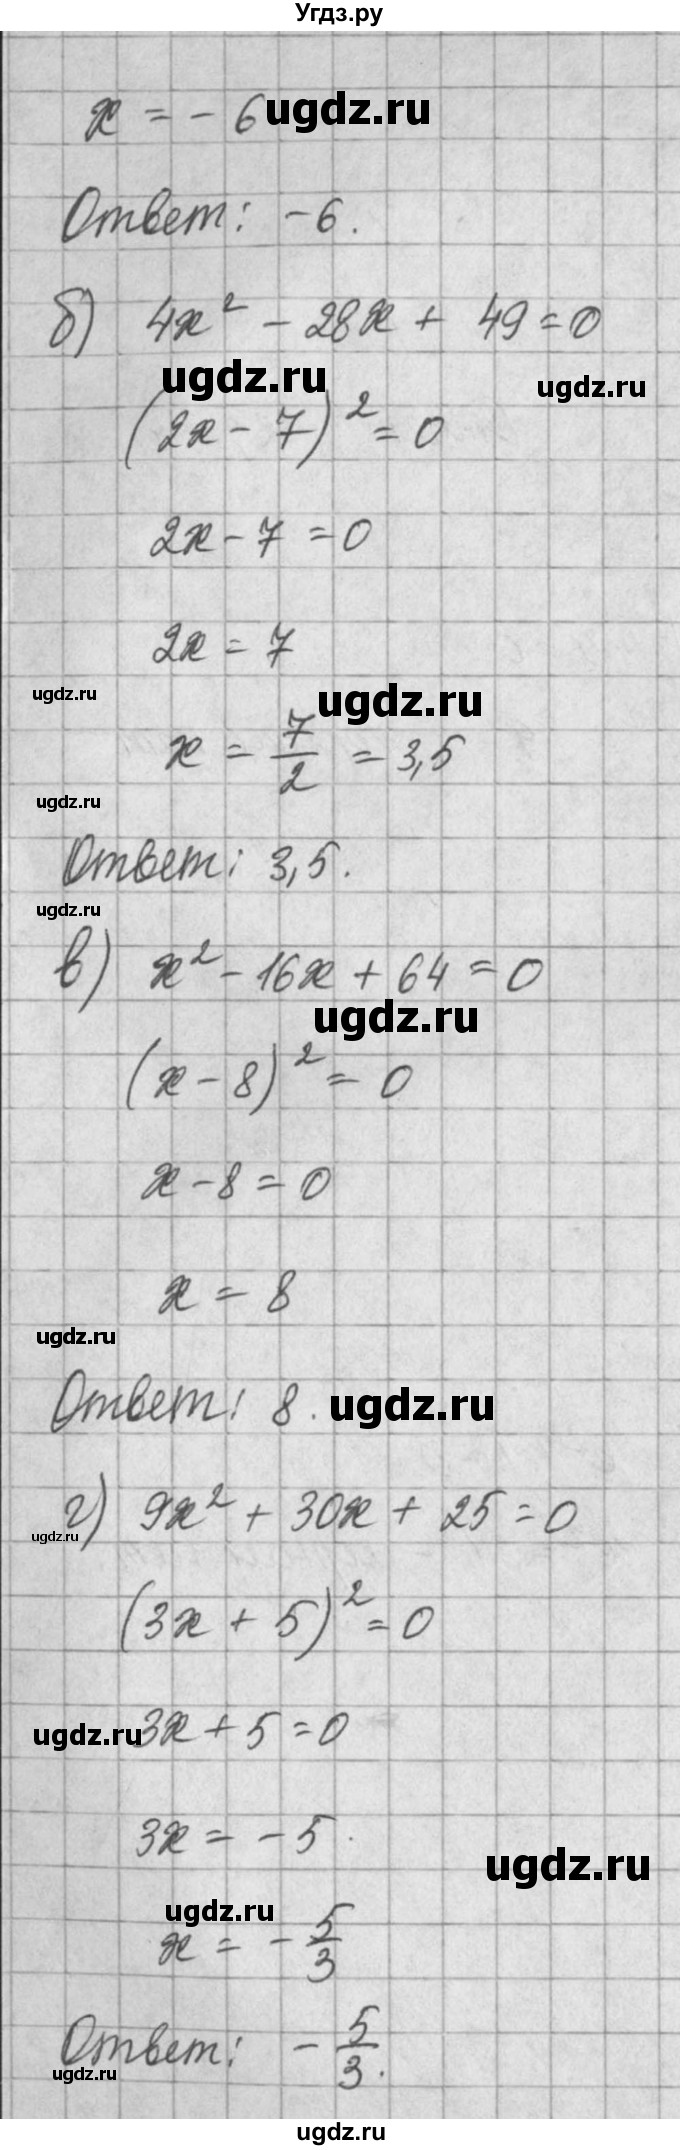 Угдз.ру
x = - 6 ugdz.ru
Ответ: -6.
б) 4x² - 28x + 49 = 0
ugdz.ru
ugdz.ru
(2x - 7)² = 0
2x - 7 = 0
2x = 7
ugdz.ru
ugdz.ru
x = 7/2 = 3,5
ugdz.ru
Ответ: 3,5.
ugdz.ru
в) x² - 16x + 64 = 0
ugdz.ru
(x - 8)² = 0
x - 8 = 0
x = 8
ugdz.ru
Ответ: 8. ugdz.ru
г) 9x² + 30x + 25 = 0
ugdz.ru
(3x + 5)² = 0
ugdz.ru 3x + 5 = 0
3x = - 5
ugdz.ru
ugdz.ru
x = - 5/3
Ответ: - 5/3.
ugdz.ru
ugdz.ru